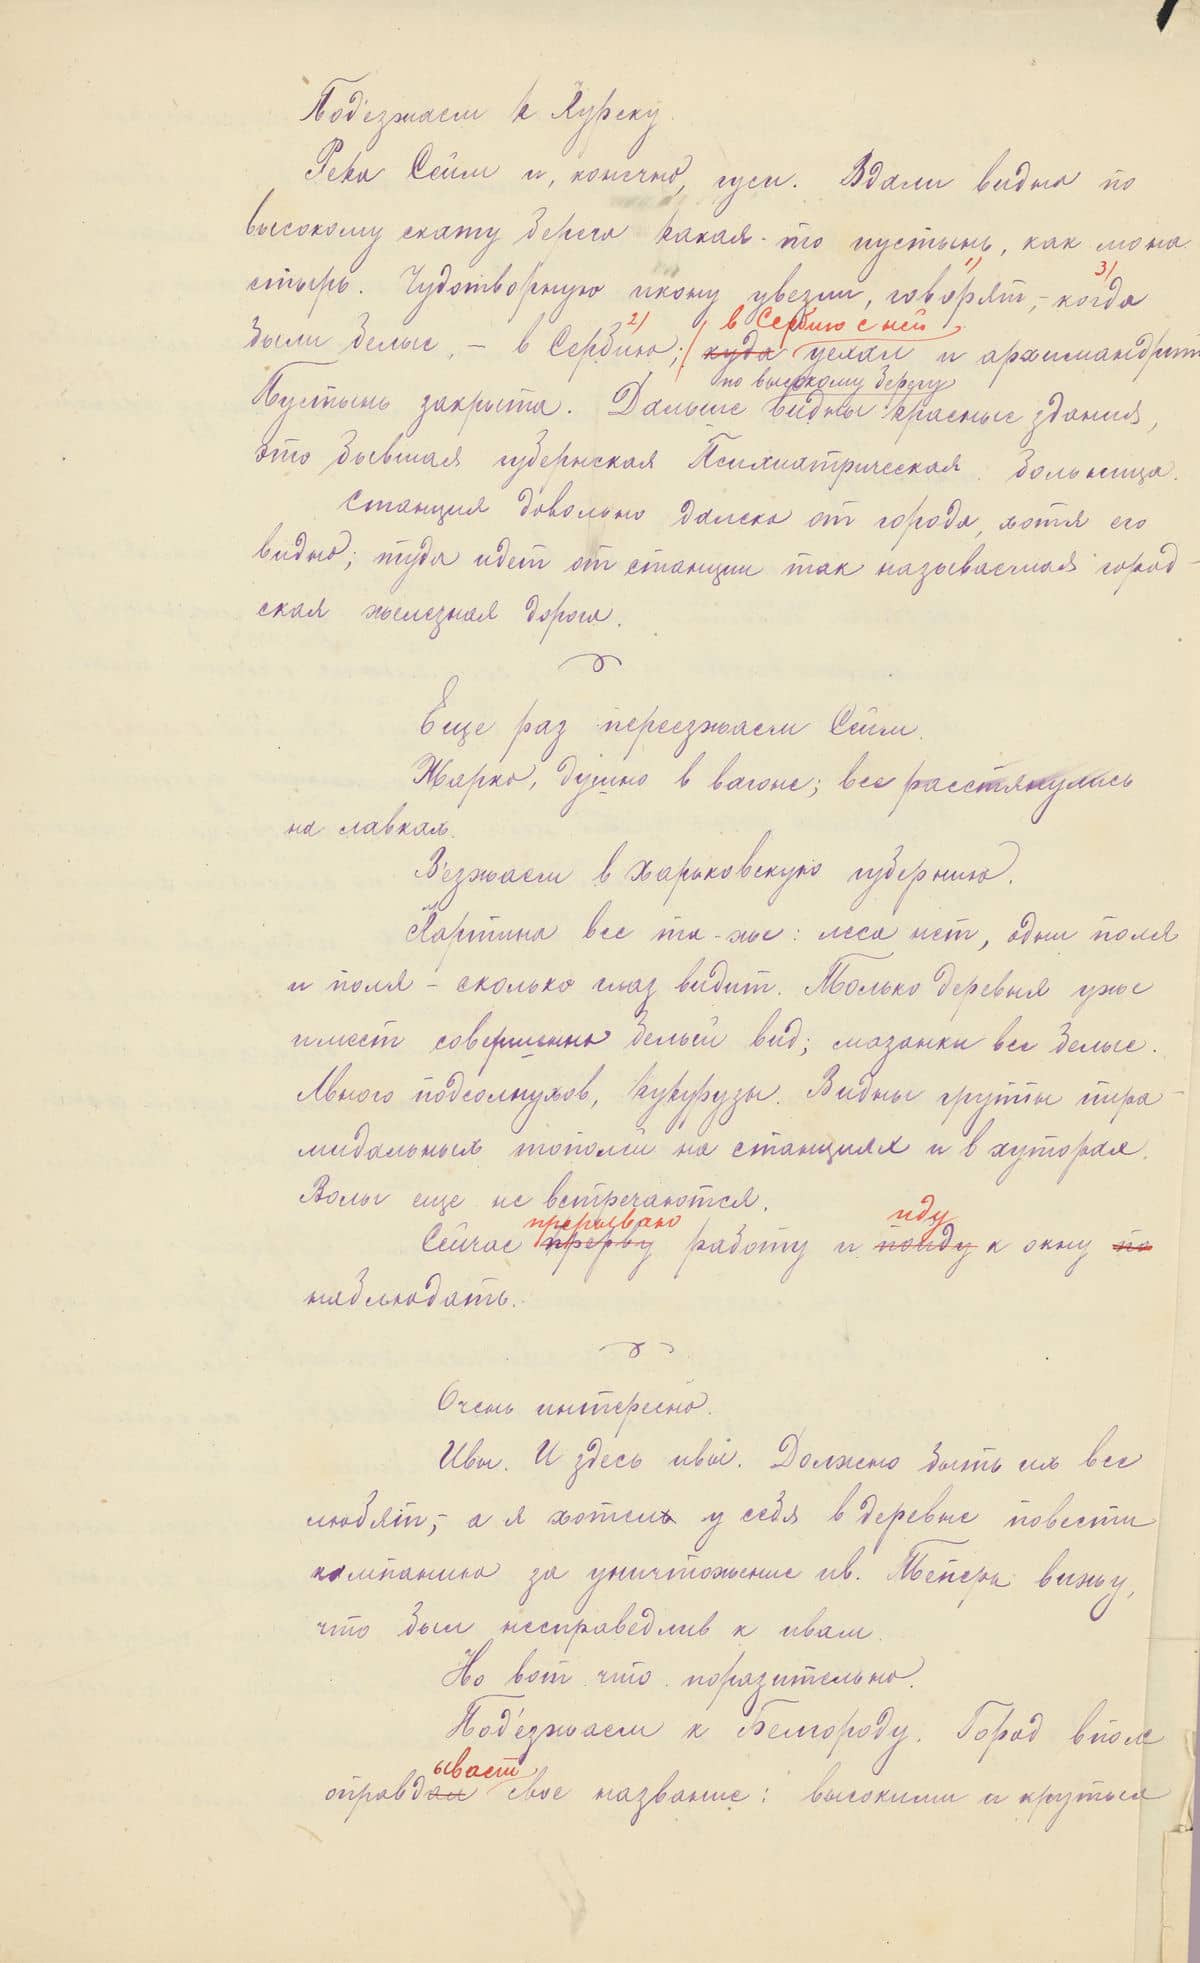 Под'езжаем к Курску.
Река Сейм и, конечно, гуси. Вдали видна по
высокому скату берега какая-то пустынь, как мона
стырь. Чудотворную икону увезли, говорят, 1) - когда 3)
были белые, - в Сербию; 2) куда в Сербию с ней уехал и архимандрит
Пустынь закрыта. Дальше по высокому берегу видны красные здания,
это бывшая губернская Психиатрическая больница.
Станция довольно далеко от города, хотя его
видно; туда идет от станции так называемая город-
ская железная дорога.
Еще раз переезжаем Сейм.
Жарко, душно в вагоне; все расстянулись
на лавках.
В'езжаем в Харьковскую губернию.
Картина все та-же: леса нет, одни поля
и поля - сколько глаз видит. Только деревня уже
имеет совершенно белый вид; мазанки все белые.
Много подсолнухов, кукурузы. Видны группы пира-
мидальных тополей на станциях и в хуторах.
Волы еще не встречаются.
Сейчас прерву прерываю работу и пойду иду к окну по
наблюдать.
Очень интересно.
Ивы. И здесь ивы. Должно быть их все
любят, - а я хотел у себя в деревне повести
кампанию за уничтожение ив. Теперь вижу,
что был несправедлив к ивам.
Но вот что поразительно.
Под'езжаем к Белгороду. Город вполне
оправдывает свое название: высокими и крутыми